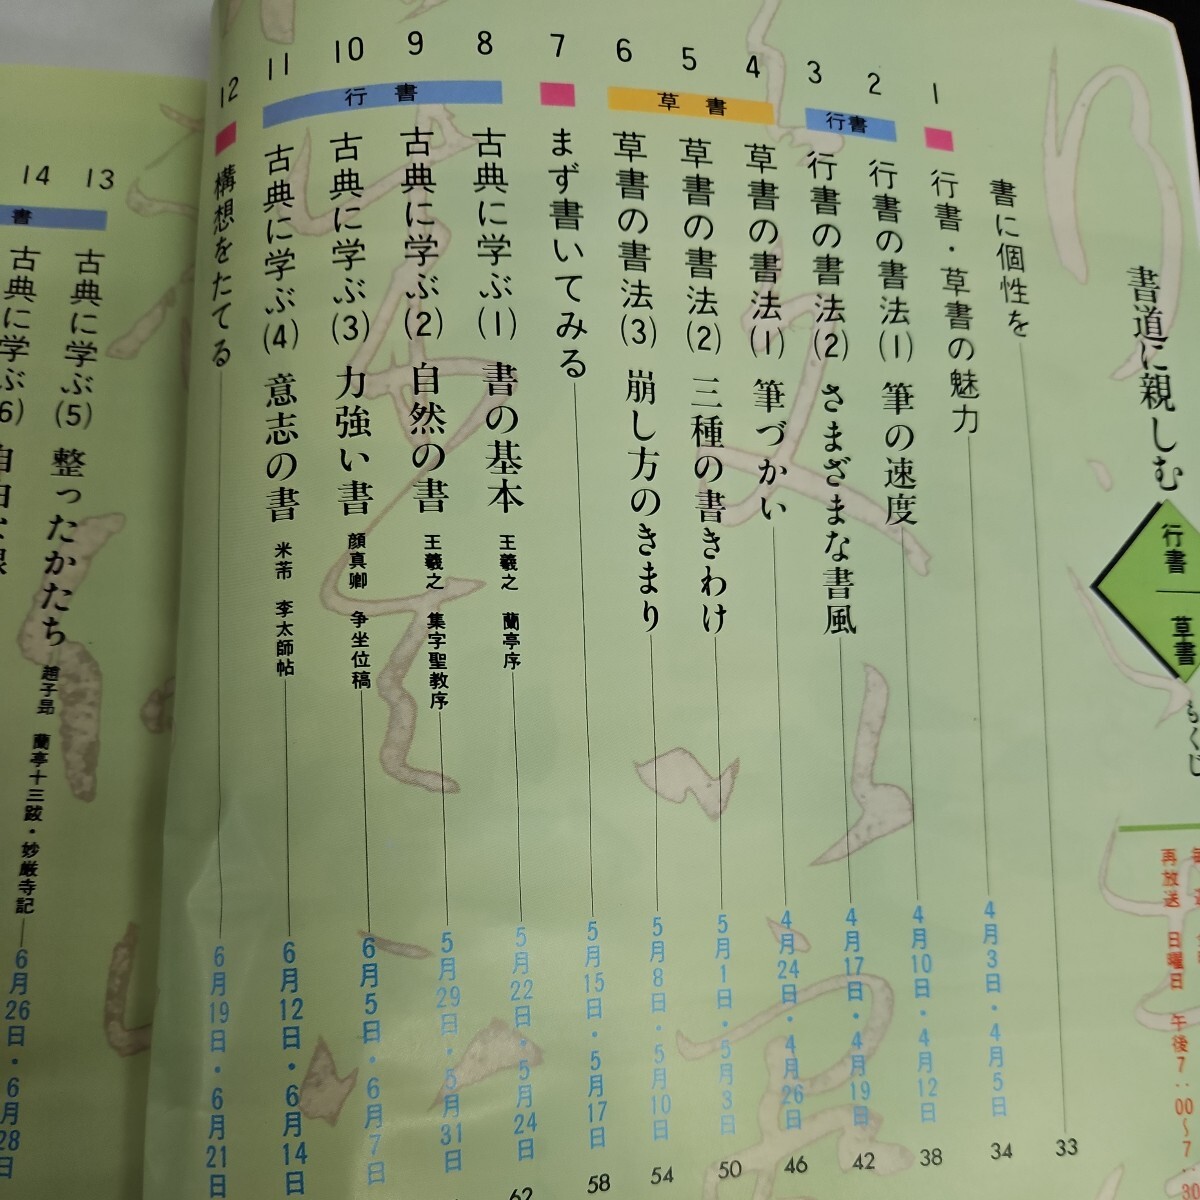 書道に親しむ
行書
草書
もくじ
再放送 日曜日 午後7:00〜7:30
書に個性を 33
1 行書・草書の魅力 4月3日・4月5日 34
行書
2 行書の書法(1) 筆の速度 4月10日・4月12日 38
3 行書の書法(2) さまざまな書風 4月17日・4月19日 42
草書
4 草書の書法(1) 筆づかい 4月24日・4月26日 46
5 草書の書法(2) 三種の書きわけ 5月1日・5月3日 50
6 草書の書法(3) 崩し方のきまり 5月8日・5月10日 54
7 まず書いてみる 5月15日・5月17日 58
行書
8 古典に学ぶ(1) 書の基本 王羲之 蘭亭序 5月22日・5月24日 62
9 古典に学ぶ(2) 自然の書 王羲之 集字聖教序 5月29日・5月31日
10 古典に学ぶ(3) 力強い書 顔真卿 争坐位稿 6月5日・6月7日
11 古典に学ぶ(4) 意志の書 米芾 李太師帖 6月12日・6月14日
12 構想をたてる 6月19日・6月21日
書
13 古典に学ぶ(5) 整ったかたち 趙子昻 蘭亭十三跋・妙厳寺記 6月26日・6月28日
14 古典に学ぶ(6)